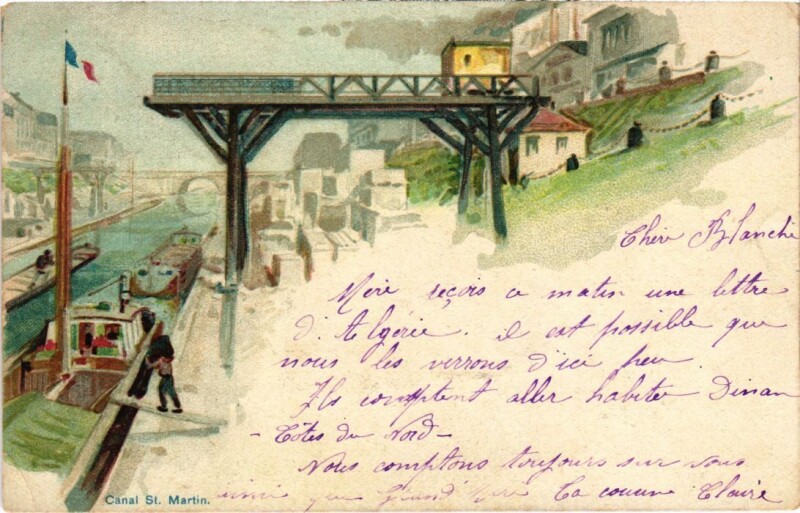 Chère Blanche
Mère reçois ce matin une lettre
d'Algérie. il est possible que
nous les verrons d'ici peu.
Ils comptent aller habiter Dinan
- Côtes du Nord -
Nous comptons toujours sur vous
ainsi que Grand'Mère Ta cousine Claire
Canal St. Martin.